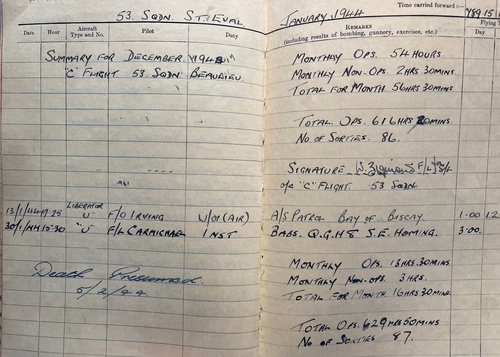 53. SQDN. ST. EVAL
JANUARY. 1944
Time carried forward :—
789.15
Date Hour Aircraft Type and No. Pilot Duty
REMARKS
(including results of bombing, gunnery, exercises, etc.)
Flying
Day
SUMMARY FOR DECEMBER.
"C" FLIGHT 53 SQDN BEAULIEU.
MONTHLY OPS. 54 HOURS
MONTHLY NON-OPS. 2HRS 30MINS
TOTAL FOR MONTH 56HRS 30MINS
TOTAL OPS. 616HRS 20MINS
NO. OF SORTIES. 86.
SIGNATURE
o/c "C" FLIGHT 53 SQDN
LIBERATOR
13/1/44 "U" F/O IRVING W/OP (AIR) A/S PATROL BAY OF BISCAY. 1.00 12
30/1/44 15:30 "U" F/L CARMICHAEL INST BABS. Q.G.H & S.E. HOMING. 3.00.
Death Presumed.
5/2/44
MONTHLY OPS. 13HRS.30MINS.
MONTHLY NON-OPS. 3HRS.
TOTAL FOR MONTH 16HRS 30MINS.
TOTAL OPS. 629HRS 50MINS
NO OF SORTIES 87.